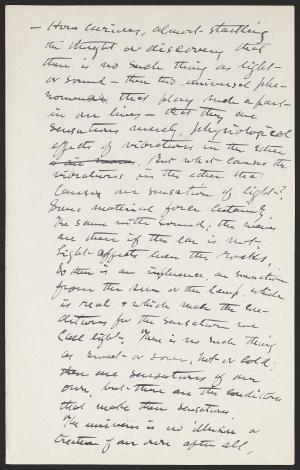 — How curious, almost startling
the thought or discovery that
there is no such thing as light—
or sound — these two universal phe-
nomena that play such a part
in our lives — that they are
sensations merely, physiological
effects of vibrations in the ether
But what causes the
vibrations in the ether that
causes our sensation of light?
Some material force certainly,
The same with sound, the waves
are there if the ear is not.
Light affects even the rocks,
So there is an influence, an emanation
from the sun or the lamp, which
is real & which make the con-
ditions for the sensation we
call light. There is no such thing
as sweet or sour, hot or cold;
are sensations of our
own, but there are the conditions
that make these sensations.
The universe is no illusion or
creation of our own after all,